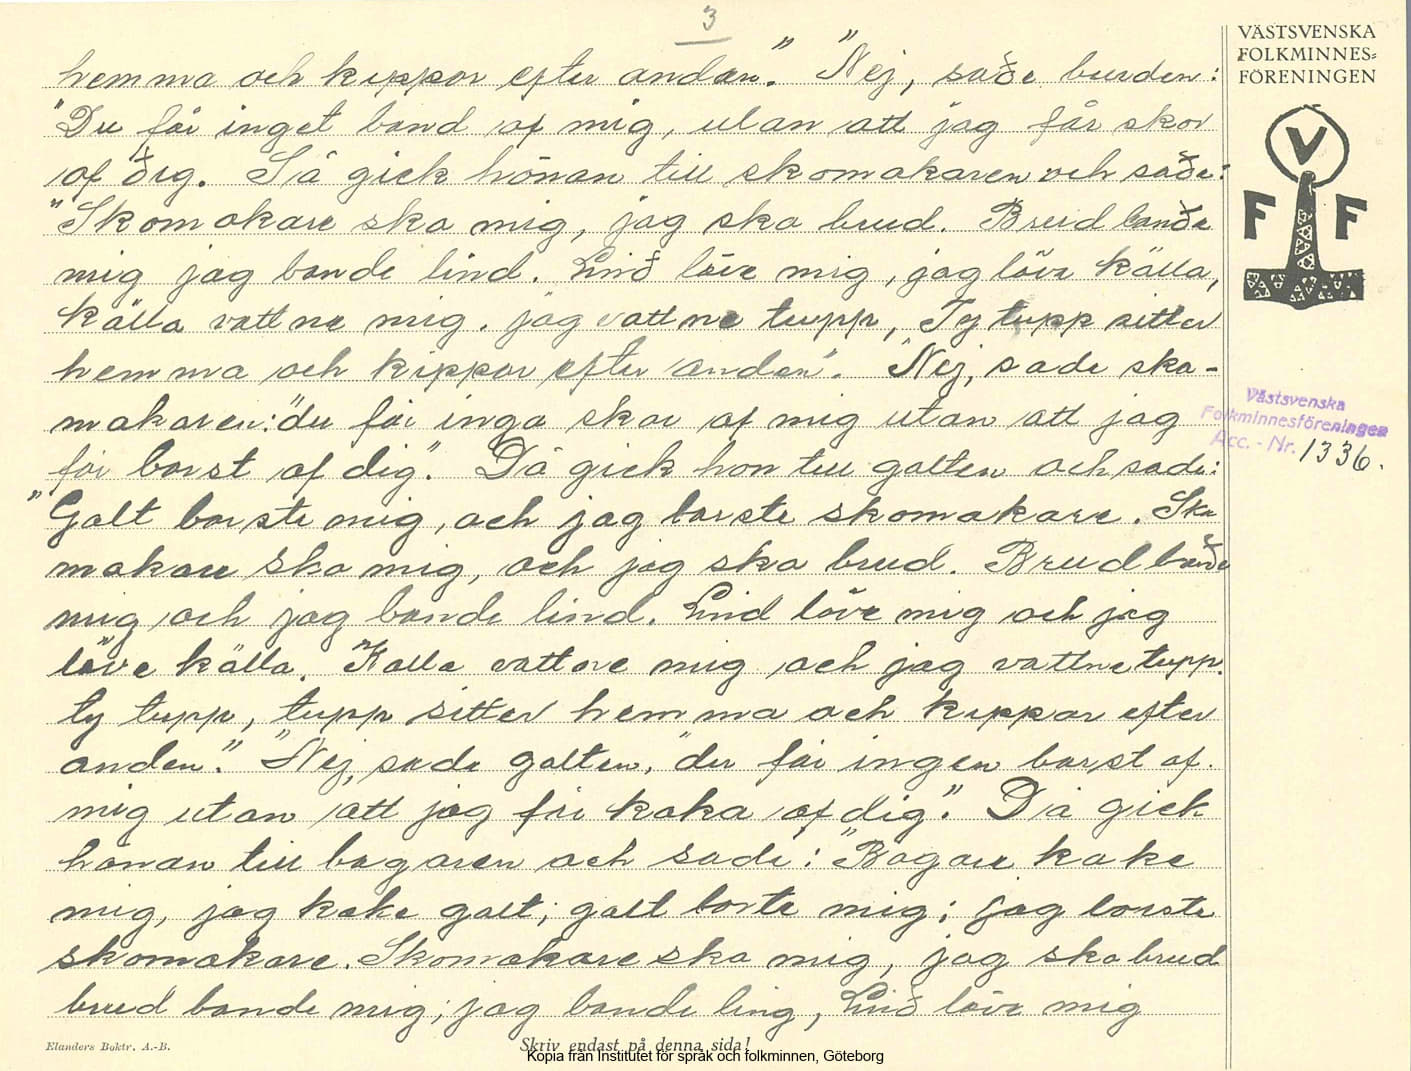 3
VÄSTSVENSKA
FOLKMINNES=
FÖRENINGEN
V
F F
hemma och kippar efter andan." "Nej, sade bruden:
"Du får inget band af mig, utan att jag får skor
af dig. Så gick hönan till skomakaren och sade:
"Skomakare sko mig, jag sko brud. Brud bande
mig jag bande lind. Lind löve mig, jag löve källa,
källa vattne mig, jag vattne tupp, Ty tupp sitter
hemma och kippar efter andan". "Nej, sade sko-
makaren: "du får inga skor af mig utan att jag
får borst af dig". Då gick hon till galten och sade:
"Galt borste mig, och jag borste skomakare. Sko
makare sko mig, och jag sko brud. Brud bande
mig och jag bande lind. Lind löve mig och jag
löve källa. Källa vattne mig och jag vattne tupp.
ty tupp, tupp sitter hemma och kippar efter
andan." "Nej, sade galten, "du får ingen borst af
mig utan att jag får kaka af dig". Då gick
hönan till bagaren och sade: "Bagare kake
mig, jag kake galt; galt borte mig; jag borste
skomakare. Skomakare sko mig, jag sko brud
brud bande mig; jag bande ling, Lind löve mig
Västsvenska
Folkminnesföreningen
Acc. - Nr. 1336.
Elanders Boktr. A.-B.
Skriv endast på denna sida!
Kopia från Institutet för språk och folkminnen, Göteborg